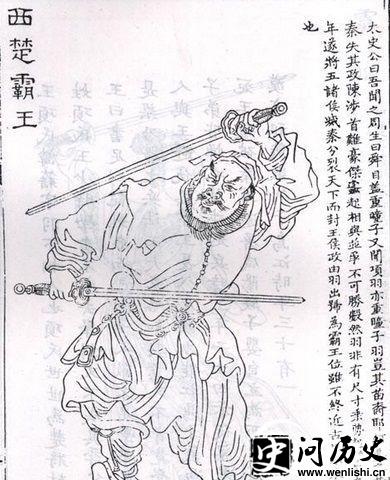 太史公曰吾聞之周生曰舜目蓋重瞳子又聞項羽亦重瞳子羽豈其苗裔耶
秦失其政陳涉首難豪傑蠭起相與並爭不可勝數然羽非有尺寸乘勢
年遂將五諸侯滅秦分裂天下而封王侯政由羽出號為霸王位雖不終近古
也
西楚霸王
问历史
www.wenlishi.cn